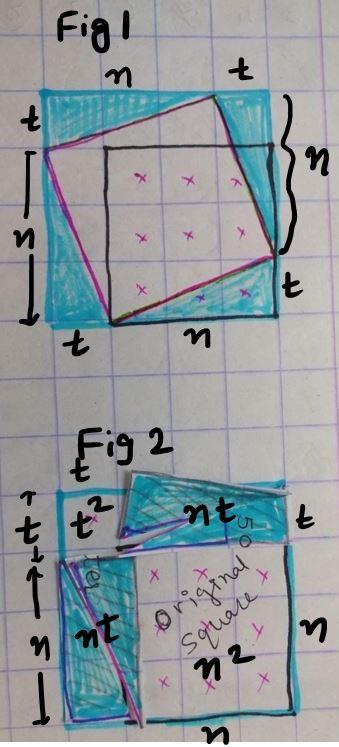 Fig 1
n t
t
n
n
t
t n
Fig 2
t
t t² nt t
n nt Original
Square
n² n
n